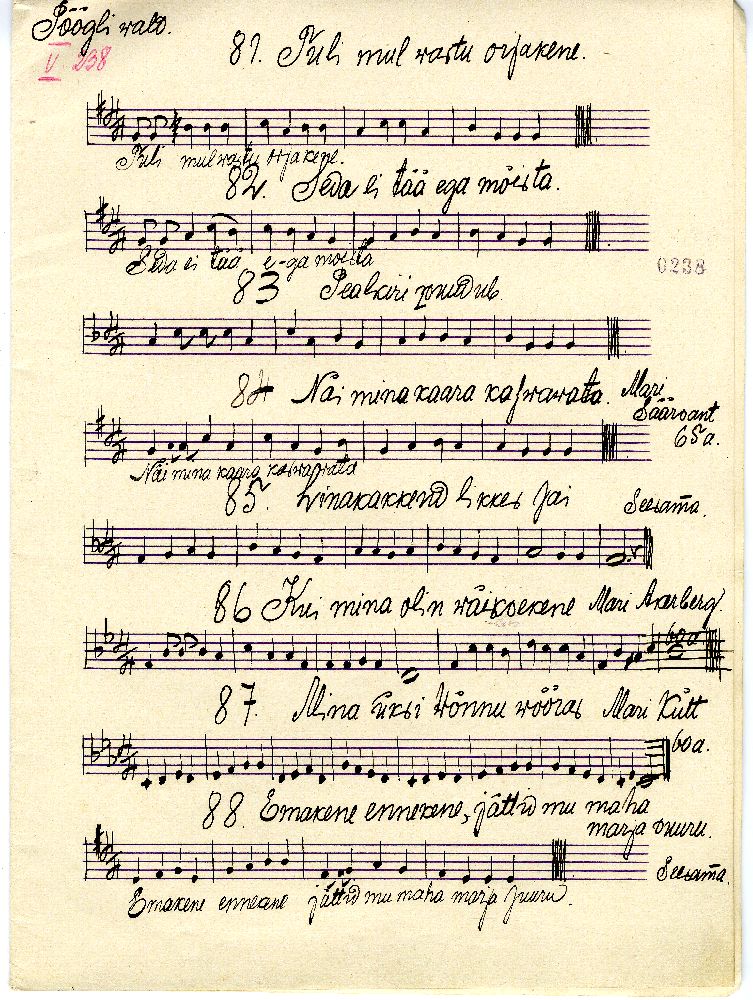 Pöögli wald.
V 238
81. Tuli mul wastu orjakene.
Tuli mul wastu orjakene.
82. Seda ei tää ega mõista.
Seda ei tää e-ga mõista
0238
83 Pealkiri puudub.
84 Näi mina kaara kaswawata. Mari
Säärwant
65a.
Näi mina kaara kaswawata
85. Linakakkend likkes jäi Seesama.
86 Kui mina olin wäikoekene Mari Akerberg
60a
87. Mina üksi Wõnnu wööras Mari Kütt
60a.
88. Emakene ennekene, jättid mu maha
marja juuru.
Seesama.
Emakene ennekene jättid mu maha marja juuru.